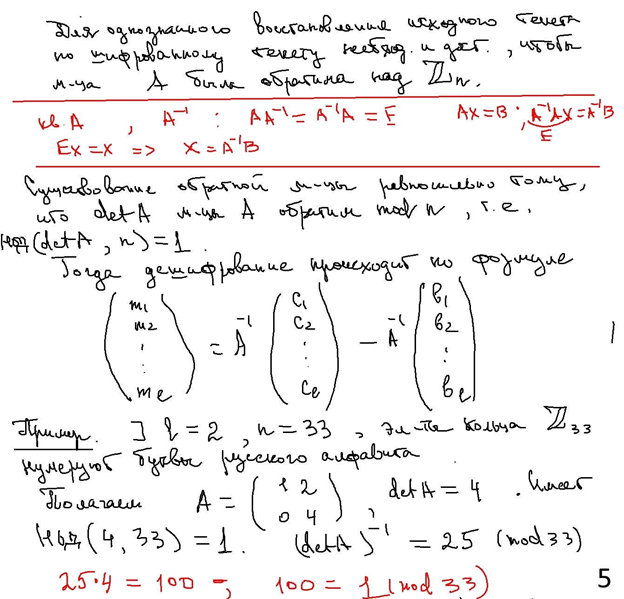 Для однозначного восстановления исходного текста
по шифрованному тексту необход. и дст., чтобы
м-ца A была обратима над ℤn.
кв. A , A⁻¹ : AA⁻¹ = A⁻¹A = E AX = B ; A⁻¹AX = A⁻¹B
E
EX = X => X = A⁻¹B
Существование обратной м-цы равносильно тому,
что det A м-цы A обратим mod n, т.е.
НОД(det A, n) = 1.
Тогда дешифрование происходит по формуле
(m₁ m₂ ⋮ mℓ) = A⁻¹ (c₁ c₂ ⋮ cℓ) − A⁻¹ (в₁ в₂ ⋮ вℓ)
Пример. ] ℓ = 2, n = 33, эл-ты кольца ℤ33
нумеруют буквы русского алфавита.
Полагаем A = (1 2 0 4), det A = 4. Имеет
НОД(4, 33) = 1. (det A)⁻¹ = 25 (mod 33)
25·4 = 100 -, 100 = 1 (mod 33)
5